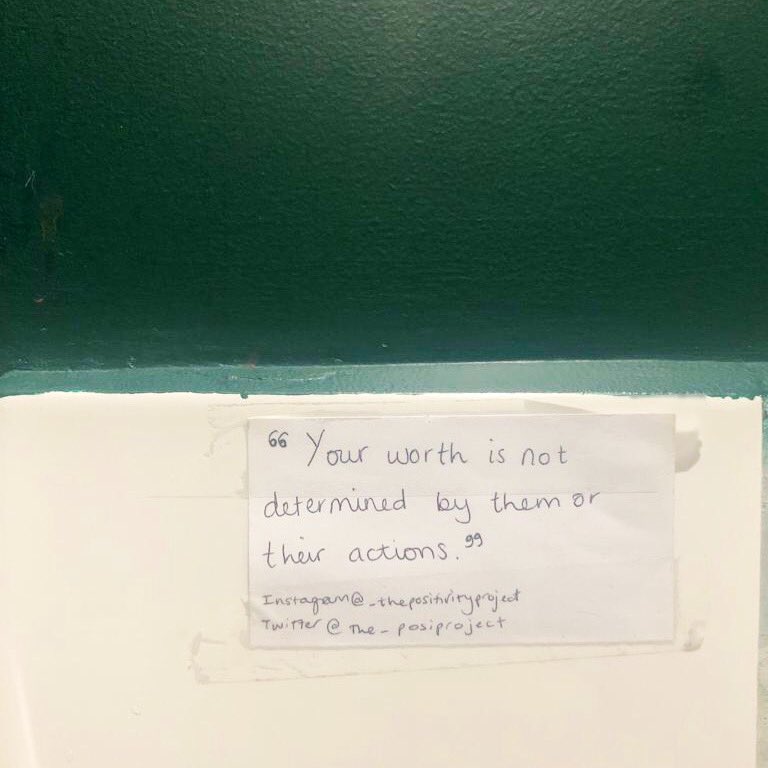 “Your worth is not
determined by them or
their actions.”
Instagram@_thepositivityproject
Twitter @ The_posiproject